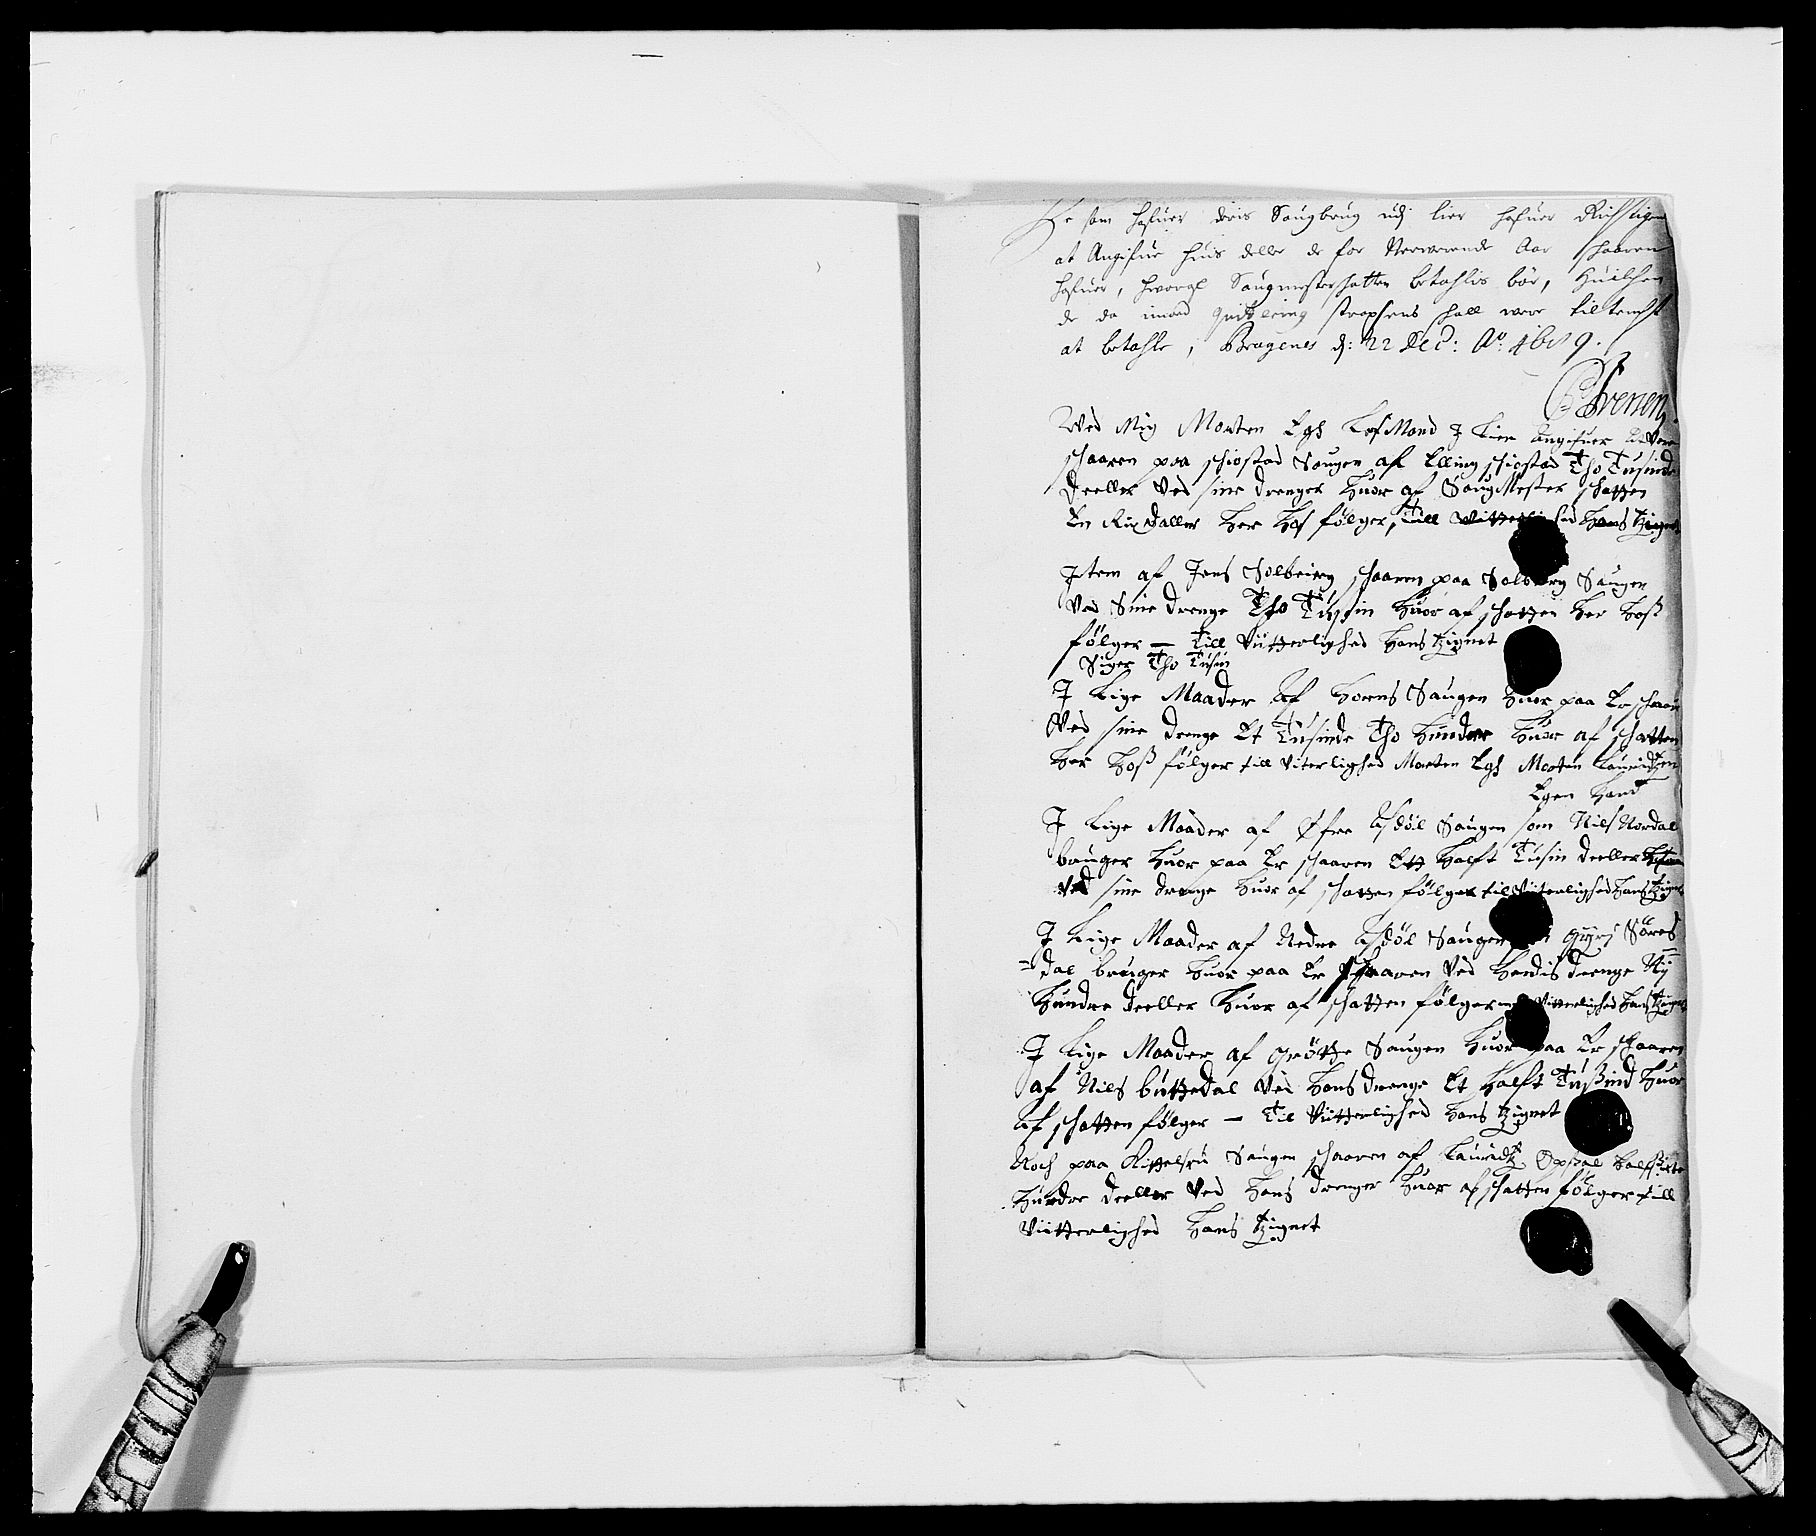 De som hafuer deris Saugbrug udj Lier hafuer Richtigen
at Angifue huis deller de for Nerverende Aar schaaren
hafuer, hvoraf Saugmesterschatten betahlis bør, huilchen
de da imod quitering straxsens schall were tiltencht
at betahle, Bragenes d: 22 Dec: Ao: 1689.
Ved Mig Morten lefMand J Lier Angifuer at vere
schaaren paa schiostad Saugen af Elling schiostad Tho Tusinde
deeller Ved sine drenger huor af SaugMester schatten
En Rixdaller her hos følger, till Vitterlighed hans Zignet
Jtem af Jens Solbierg schaaren paa Solberg Saugen
Ved Sine drenge Tho Tusin huor af schatten her hoß
følger — Till Vitterlighed hans Zignet
Siger Tho Tusin
J Lige Maader af horns Saugen huor paa Er schaaren
Ved sine drenge Et Tusinde Tho hundre huor af schatten
her hoß følger till Viterlighed Morten Morten Lauridzen
Egen hand
J Lige Maader af Øfre Asdøl Saugen som Nils Nordal
bruger huor paa Er schaaren Ett halft Tusin deeller
Ved sine drenge huor af schatten følger til Viterlighed hans Zignet
J Lige Maader af Nedre Asdøl Saugen Søres
=dal bruger huor paa Er schaaren Ved hendis drenge Nij
hundre deeller huor af schatten følger Vitterlighed hans Zignet
J Lige Maader af grøtte Saugen huor paa Er schaaren
af Nils buttedal Ved hans drenge Et halft Tusind huor
af schatten følger — Til Vitterlighed hans Zignet
Noch paa Kittelsru Saugen schaaren af Lauridz Opsal halfsiette
hundre deeller Ved hans drenger huor af schatten følger till
Vitterlighed hans Zignet